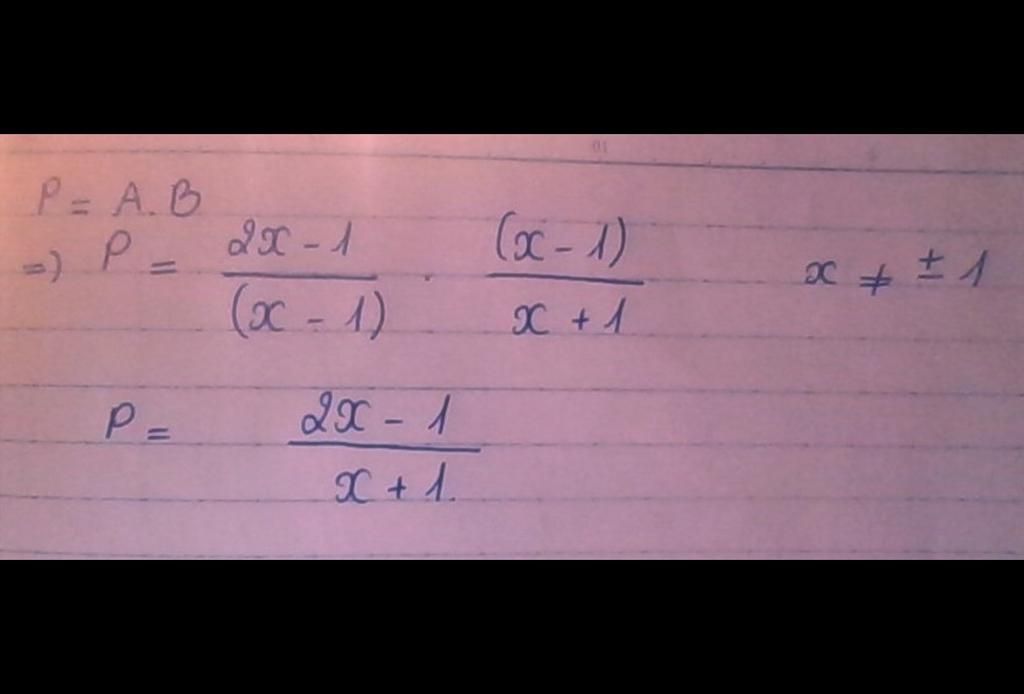 P = A.B
=) P = \frac{2x - 1}{(x - 1)} . \frac{(x - 1)}{x + 1} x ≠ ± 1
P = \frac{2x - 1}{x + 1}.